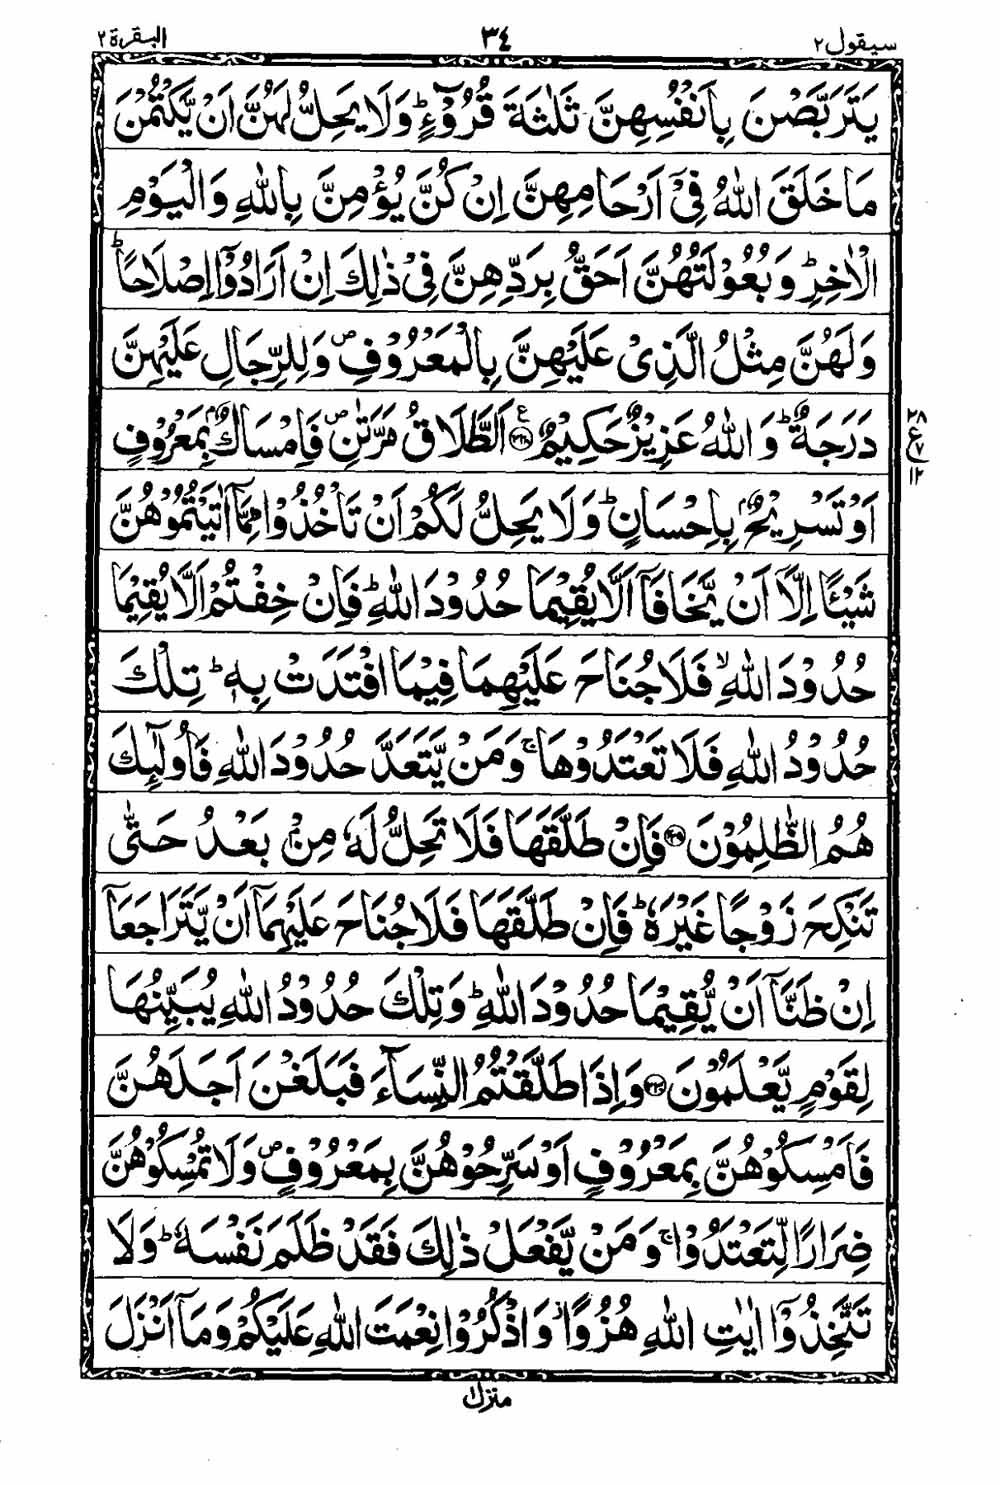 سيقول ٢ ٣٤ البقرة ٢
يَتَرَبَّصْنَ بِاَنْفُسِهِنَّ ثَلٰثَةَ قُرُوْٓءٍ ؕ وَلَا يَحِلُّ لَهُنَّ اَنْ يَّكْتُمْنَ
مَا خَلَقَ اللّٰهُ فِىْٓ اَرْحَامِهِنَّ اِنْ كُنَّ يُؤْمِنَّ بِاللّٰهِ وَالْيَوْمِ
الْاٰخِرِ ؕ وَبُعُوْلَتُهُنَّ اَحَقُّ بِرَدِّهِنَّ فِىْ ذٰلِكَ اِنْ اَرَادُوْٓا اِصْلَاحًا ؕ
وَلَهُنَّ مِثْلُ الَّذِىْ عَلَيْهِنَّ بِالْمَعْرُوْفِ ۪ وَلِلرِّجَالِ عَلَيْهِنَّ
دَرَجَةٌ ؕ وَاللّٰهُ عَزِيْزٌ حَكِيْمٌ ﴿۲۲۸﴾ ع اَلطَّلَاقُ مَرَّتٰنِ ۪ فَاِمْسَاكٌۢ بِمَعْرُوْفٍ
٢٨ ع ٧ ١٢
اَوْ تَسْرِيْحٌۢ بِاِحْسَانٍ ؕ وَلَا يَحِلُّ لَكُمْ اَنْ تَاْخُذُوْا مِمَّآ اٰتَيْتُمُوْهُنَّ
شَيْـًٔا اِلَّآ اَنْ يَّخَافَآ اَلَّا يُقِيْمَا حُدُوْدَ اللّٰهِ ؕ فَاِنْ خِفْتُمْ اَلَّا يُقِيْمَا
حُدُوْدَ اللّٰهِ ۙ فَلَا جُنَاحَ عَلَيْهِمَا فِيْمَا افْتَدَتْ بِهٖ ؕ تِلْكَ
حُدُوْدُ اللّٰهِ فَلَا تَعْتَدُوْهَا ۚ وَمَنْ يَّتَعَدَّ حُدُوْدَ اللّٰهِ فَاُولٰٓئِكَ
هُمُ الظّٰلِمُوْنَ ﴿۲۲۹﴾ فَاِنْ طَلَّقَهَا فَلَا تَحِلُّ لَهٗ مِنْۢ بَعْدُ حَتّٰى
تَنْكِحَ زَوْجًا غَيْرَهٗ ؕ فَاِنْ طَلَّقَهَا فَلَا جُنَاحَ عَلَيْهِمَآ اَنْ يَّتَرَاجَعَآ
اِنْ ظَنَّآ اَنْ يُّقِيْمَا حُدُوْدَ اللّٰهِ ؕ وَتِلْكَ حُدُوْدُ اللّٰهِ يُبَيِّنُهَا
لِقَوْمٍ يَّعْلَمُوْنَ ﴿۲۳۰﴾ وَاِذَا طَلَّقْتُمُ النِّسَآءَ فَبَلَغْنَ اَجَلَهُنَّ
فَاَمْسِكُوْهُنَّ بِمَعْرُوْفٍ اَوْ سَرِّحُوْهُنَّ بِمَعْرُوْفٍ ۪ وَلَا تُمْسِكُوْهُنَّ
ضِرَارًا لِّتَعْتَدُوْا ۚ وَمَنْ يَّفْعَلْ ذٰلِكَ فَقَدْ ظَلَمَ نَفْسَهٗ ؕ وَلَا
تَتَّخِذُوْٓا اٰيٰتِ اللّٰهِ هُزُوًا ؗ وَاذْكُرُوْا نِعْمَتَ اللّٰهِ عَلَيْكُمْ وَمَآ اَنْزَلَ
منزل ١